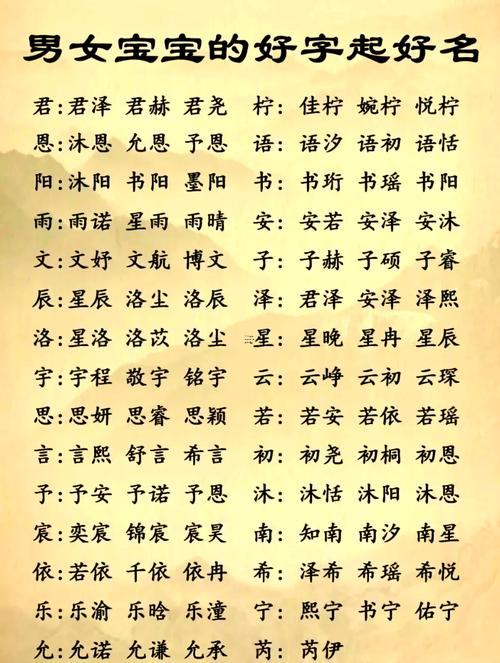 男女宝宝的好字起好名
君:君泽 君赫 君尧 柠: 佳柠 婉柠 悦柠
恩:沐恩 允恩 予恩 语: 语汐 语初 语恬
阳:沐阳 书阳 墨阳 书: 书珩 书瑶 书阳
雨:雨诺 星雨 雨晴 安: 安若 安泽 安沐
文:文妤 文航 博文 子: 子赫 子硕 子睿
辰:星辰 洛尘 洛辰 泽: 君泽 安泽 泽熙
洛:星洛 洛苡 洛尘 星: 星晚 星冉 星辰
宇:宇程 敬宇 铭宇 云: 云峥 云初 云琛
思:思妍 思睿 思颖 若: 若安 若依 若瑶
言:言熙 舒言 希言 初: 初尧 初桐 初恩
予:予安 予诺 予恩 沐: 沐恬 沐阳 沐恩
宸:奕宸 锦宸 宸昊 南: 知南 南汐 南星
依:若依 千依 依冉 希: 泽希 南希 希悦
乐:乐渝 乐晗 乐潼 宁: 熙宁 书宁 佑宁
允:允诺 允谦 允承 芮: 芮伊